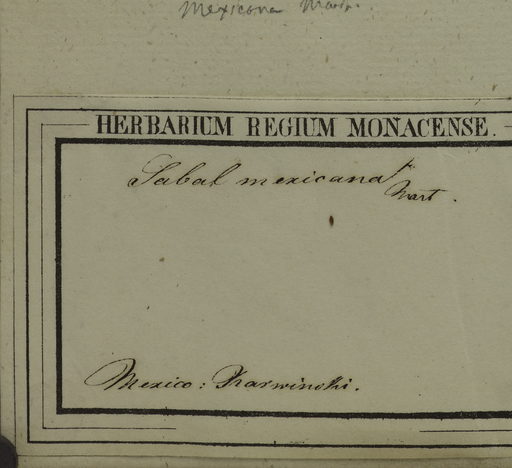 Mexicana Mart.
HERBARIUM REGIUM MONACENSE.
Sabal mexicana
Mart.
Mexico: Karwinski.